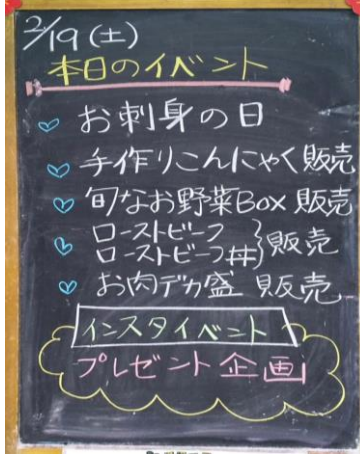 2/19(土)
本日のイベント
お刺身の日
手作りこんにゃく販売
旬なお野菜Box 販売
ローストビーフ
ローストビーフ丼}販売
お肉デカ盛 販売
インスタイベント
プレゼント企画